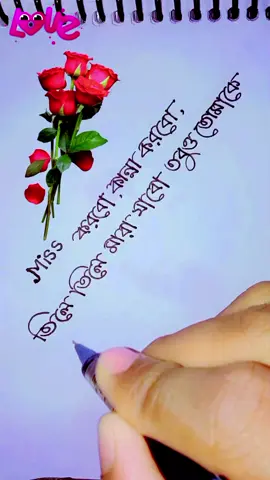 Love
Miss করবো, কান্না করবো,
তিলে তিলে মারা যাবো তবুও তোমাকে